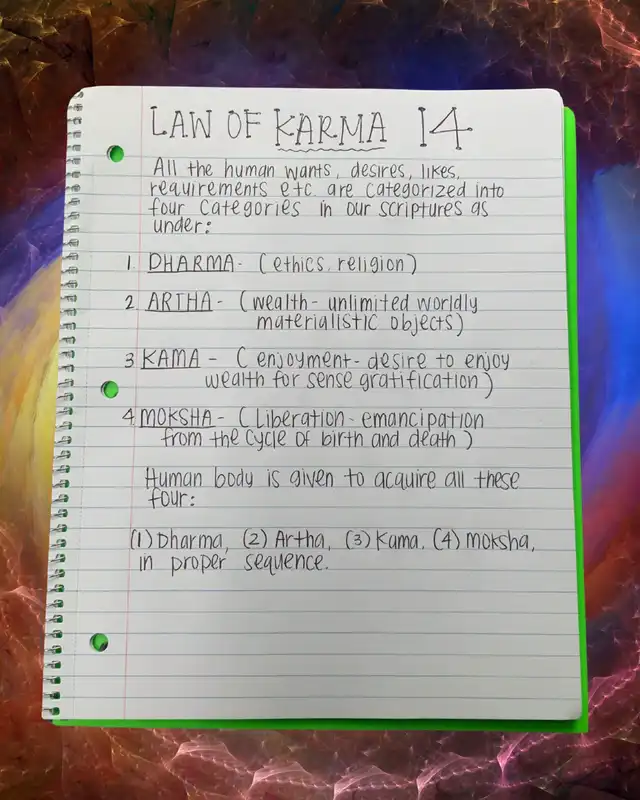 LAW OF KARMA 14
All the human wants, desires, likes,
requirements etc. are categorized into
four categories in our scriptures as
under:
1. DHARMA - (ethics, religion)
2 ARTHA - (wealth - unlimited worldly
materialistic objects)
3 KAMA - (enjoyment - desire to enjoy
wealth for sense gratification)
4 MOKSHA - (Liberation - emancipation
from the cycle of birth and death)
Human body is given to acquire all these
four:
(1) Dharma, (2) Artha, (3) Kama, (4) Moksha,
in proper sequence.